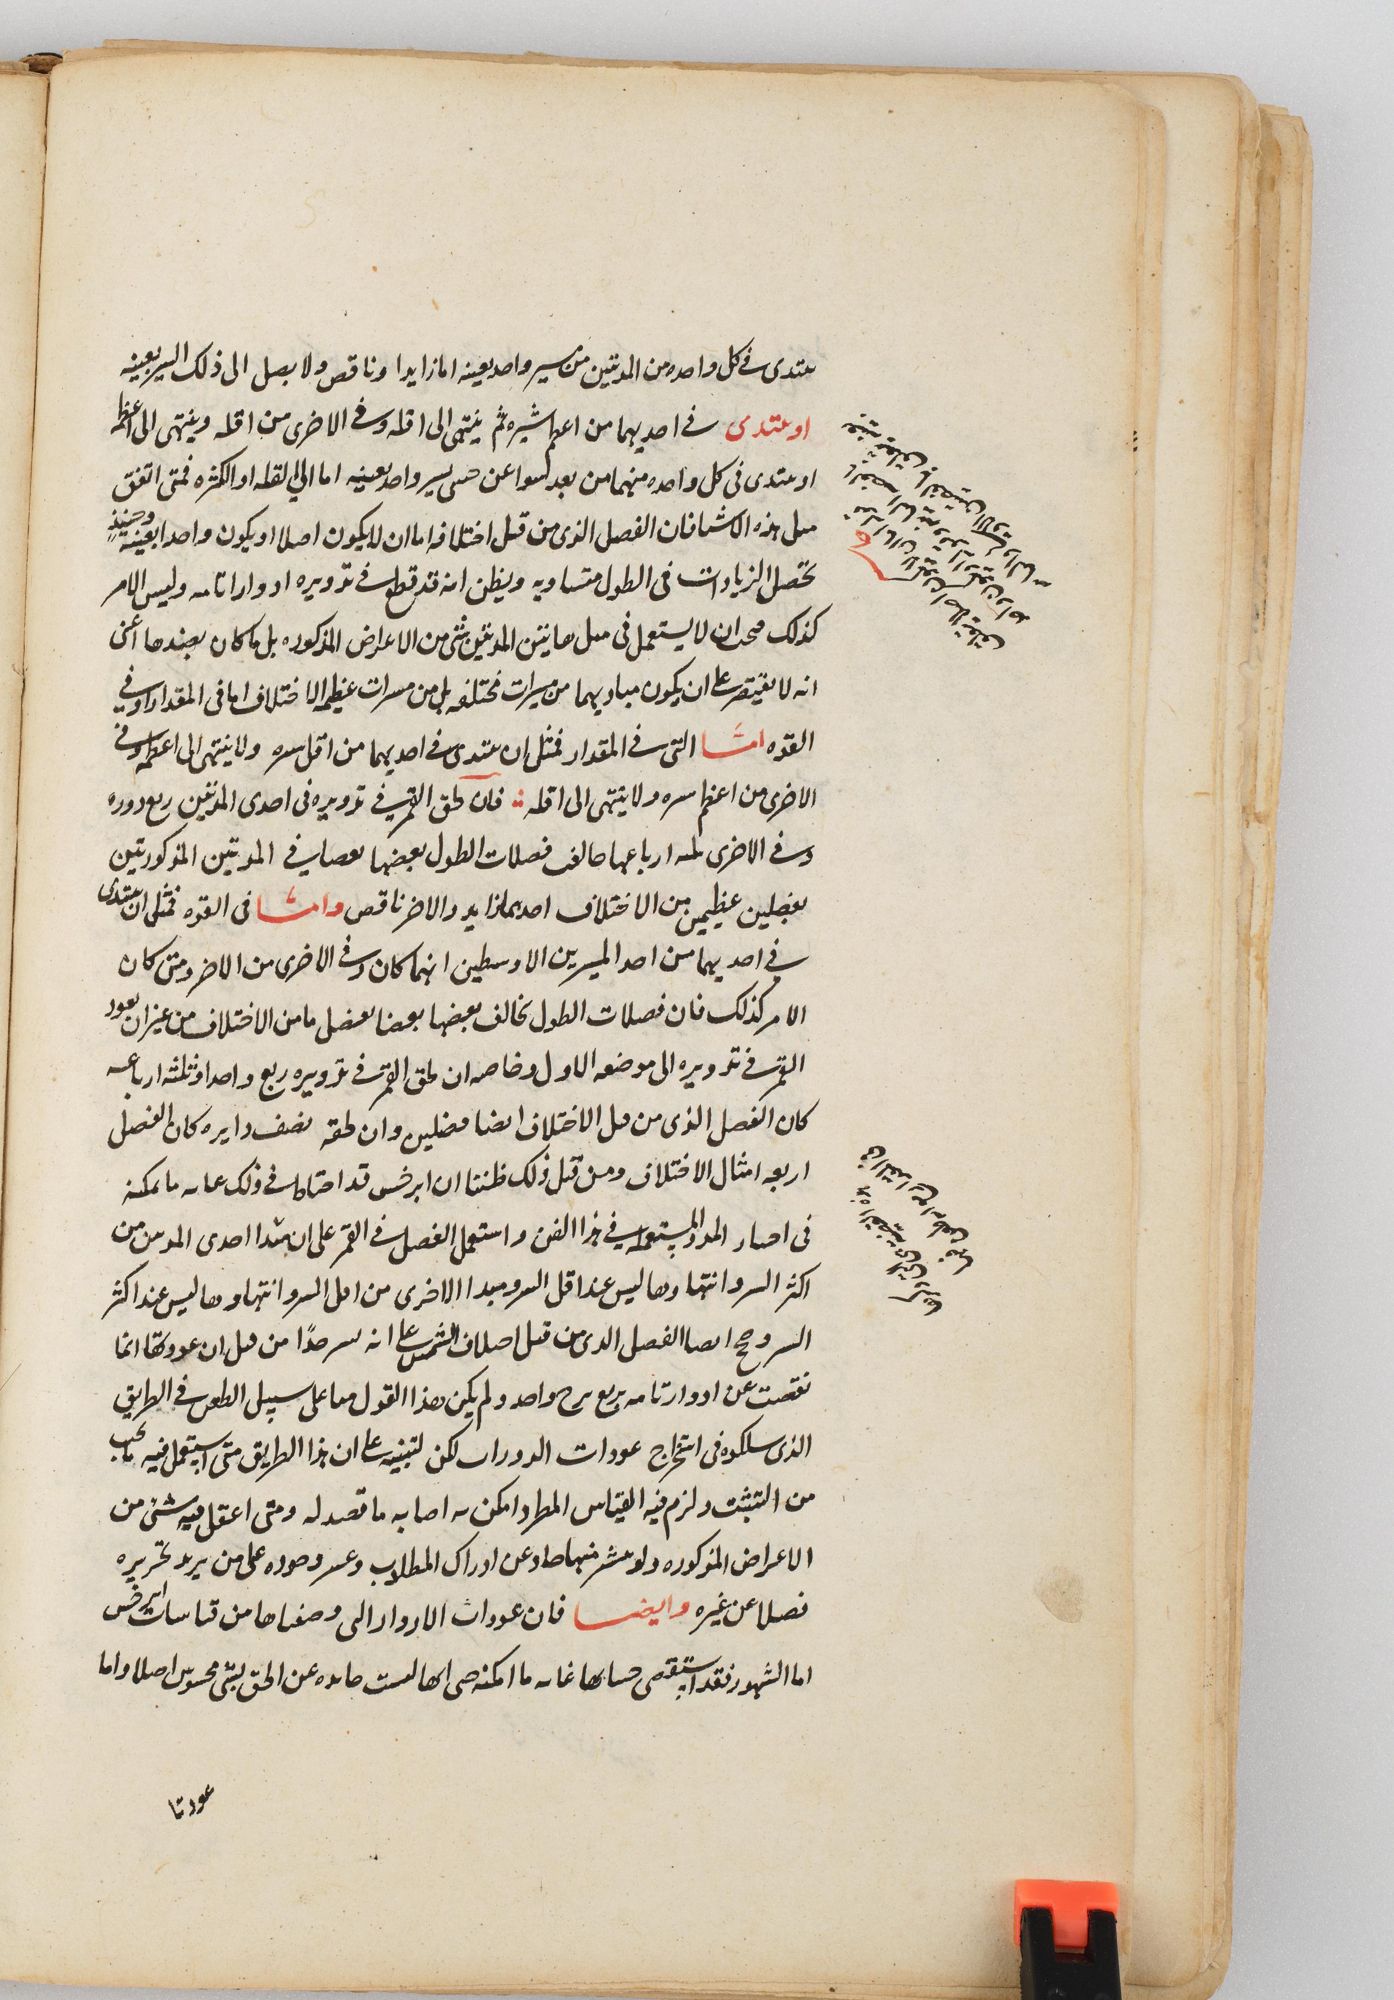 ىىتدى فى كل واحده من المدتين من سير واحد بعينه اما زايدا وناقص ولا يصل الى ذلك السير بعينه
او ىىتدى فى احديهما من اعظم سيره ثم ينتهى الى اقله وفى الاخرى من اقله وينتهى الى اعظمه
او ىىتدى فى كل واحده منهما من بعد سوا عن جنبى سير واحد بعينه اما الى القله او الكثره فمتى اتفق
مثل هذه الاشيا فان الفصل الذى من قبل اختلافه اما ان لا يكون اصلا او يكون واحدا بعينه وحينئذٍ
تحصل الزيادات فى الطول متساويه ويظن انه قد قطع فى تدويره ادوارا تامه وليس الامر
كذلك فيجب ان لا يستعمل فى مثل هاتين المدتين شى من الاعراض المذكوره بل ما كان بضدها اعنى
انه لا يقتصر على ان يكون مباديهما من مسيرات مختلفه بل من مسيرات عظيمه الاختلاف اما فى المقدار او فى
القوه اما التى فى المقدار فمثل ان ىىتدى فى احديهما من اقل سيره ولا ينتهى الى اعظمه وفى
الاخرى من اعظم سيره ولا ينتهى الى اقله فان لحق القمر فى تدويره فى احدى المدتين ربع دوره
وفى الاخرى ثلثه ارباعها خالفت فصلات الطول بعضها بعضا فى المدتين المذكورتين
بفصلين عظيمين من الاختلاف احدهما زايد والاخر ناقص واما فى القوه فمثل ان يبتدى
فى احديهما من احد المسيرين الاوسطين ايهما كان وفى الاخرى من الاخر ومتى كان
الامر كذلك فان فصلات الطول يخالف بعضها بعضا بفصل ما من الاختلاف من غير ان يعود
القمر فى تدويره الى موضعه الاول وخاصه ان لحق القمر فى تدويره ربع واحد او ثلثه ارباعه
كان الفصل الذى من قبل الاختلاف ايضا فصلين وان لحقه نصف دايره كان الفصل
اربعه امثال الاختلاف ومن قبل ذلك ظننا ان ابرخس قد احتاط فى ذلك غايه ما يمكنه
فى اختيار المدد المستعمله فى هذا الفن واستعمل الفصل فى القمر على ان مبدا احدى المدتين من
اكثر السير وانتهاوها ليس عند اقل السير ومبدا الاخرى من اقل السير وانتهاوها ليس عند اكثر
السير وصحح ايضا الفصل الذى من قبل اختلاف الشمس على انه يسير جدًا من قبل ان عودتها انما
نقصت عن ادوار تامه بربع برج واحد ولم يكن هذا القول منا على سبيل الطعن فى الطريق
الذى سلكوه فى استخراج عودات الدورات لكن لتنبيه على ان هذا الطريق متى استعمل فيه ما يجب
من التثبت ولزم فيه القياس المطرد امكن به اصابه ما قصد له ومتى اغفل فيه شى من
الاعراض المذكوره ولو يسير منها حاد عن ادراك المطلوب وعسر وجوده على من يريد تحريره
فضلا عن غيره وايضا فان عودات الادوار التى وصفناها من قياسات ابرخس
اما الشهور فقد استقصى حسابها غايه ما امكنه حتى انها ليست حايده عن الحق بشى محسوس اصلا واما
عودتا